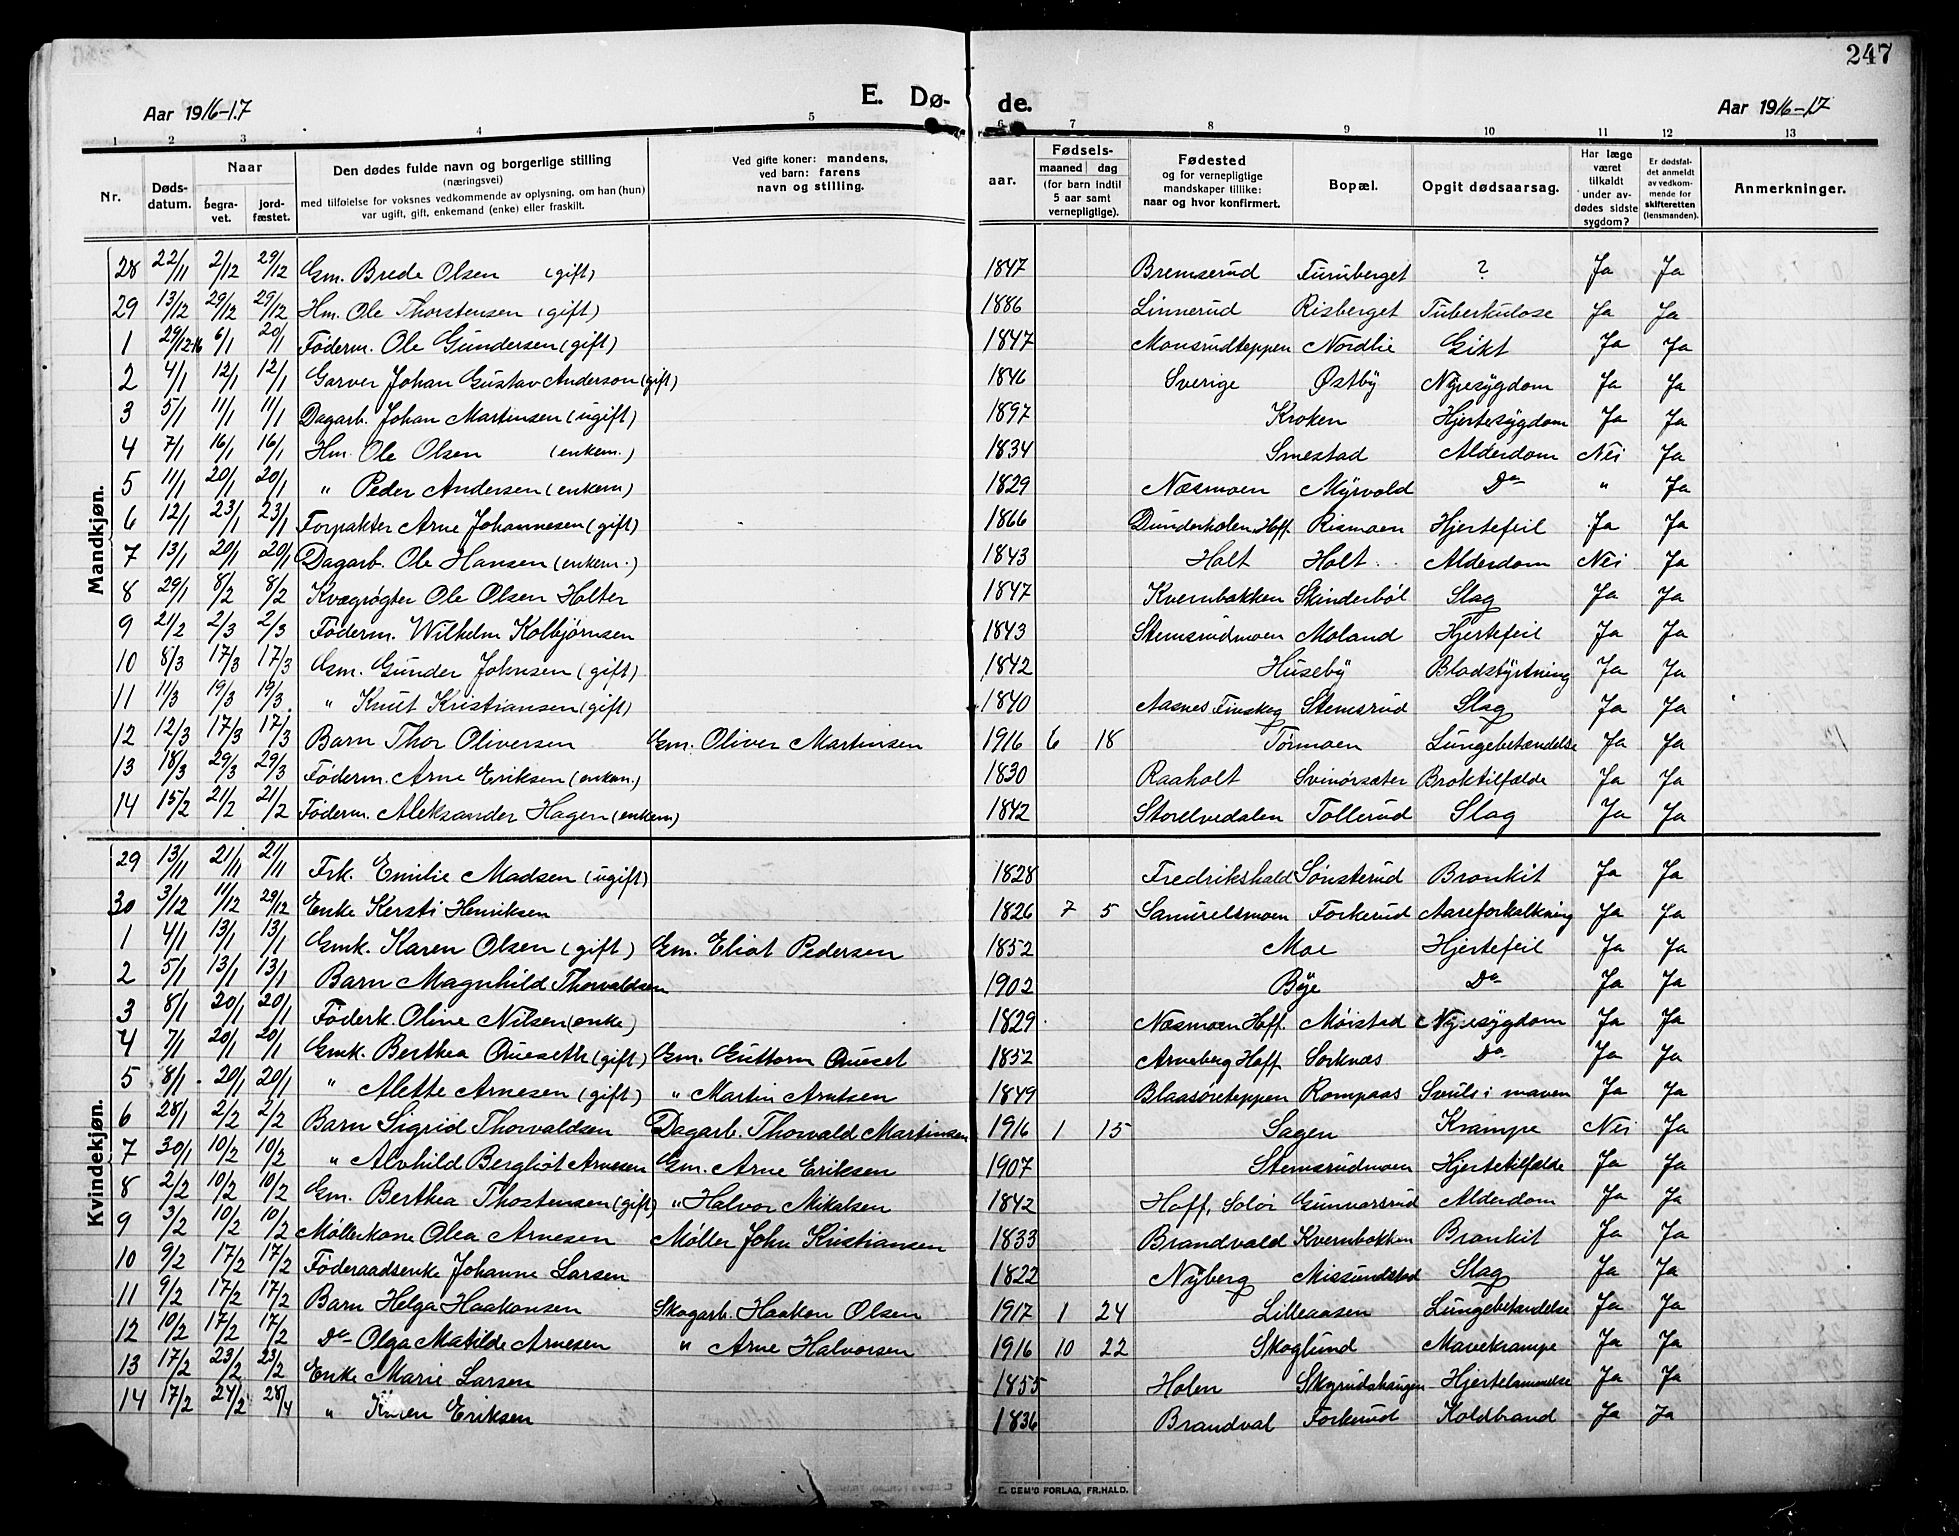 247
Aar 1916-17 E. Dø- de. Aar 1916-17
1 2 3 4 5 6 7 8 9 10 11 12 13
Nr. Døds-datum. Naar begra-vet. jord-fæstet. Den dødes fulde navn og borgerlige stilling (næringsvei) med tilføielse for voksnes vedkommende av oplysning, om han (hun) var ugift, gift, enkemand (enke) eller fraskilt. Ved gifte koner: mandens, ved barn: farens navn og stilling. Fødsels- aar. maaned dag (for barn indtil 5 aar samt vernepligtige). Fødested og for vernepligtige mandskaper tillike: naar og hvor konfirmert. Bopæl. Opgit dødsaarsag. Har læge været tilkaldt under av-dødes sidste sygdom? Er dødsfal-det anmeldt av vedkom-mende for skifteretten (lensmanden). Anmerkninger.
Mandkjøn.
28 22/11 2/12 29/12 Gm. Brede Olsen (gift) 1847 Bremserud Furuberget ? Ja Ja
29 13/12 29/12 29/12 Hm. Ole Thorstensen (gift) 1886 Linnerud Risberget Tuberkulose Ja Ja
1 29/12-16 6/1 20/1 Føderm. Ole Gundersen (gift) 1847 Monsrudteppen Nordlie Gikt Ja Ja
2 4/1 12/1 12/1 Garver Johan Gustav Anderson (gift) 1846 Sverige Østby Nyresygdom Ja Ja
3 5/1 11/1 11/1 Dagarb. Johan Martinsen (ugift) 1897 Kroken Hjertesygdom Ja Ja
4 7/1 16/1 16/1 Hm. Ole Olsen (enkem.) 1834 Smestad Alderdom Nei Ja
5 11/1 20/1 20/1 " Peder Andersen (enkem) 1829 Næsmoen Myrvold Do " Ja
6 12/1 23/1 23/1 Forpakter Arne Johannesen (gift) 1866 Dunderholen Hoff. Rismoen Hjertefeil Ja Ja
7 13/1 20/1 20/1 Dagarb. Ole Hansen (enkem.) 1843 Holt Holt. Alderdom Nei Ja
8 29/1 8/2 8/2 Kvægrøgter Ole Olsen Holter 1847 Kvernbakken Skinderbøl Slag Ja Ja
9 21/2 2/3 2/3 Føderm. Wilhelm Kolbjørnsen 1843 Stemsrudmoen Moland Hjertefeil Ja Ja
10 8/3 17/3 17/3 Gm. Gunder Johnsen (gift) 1842 Huseby Blodstyrtning Ja Ja
11 11/3 19/3 19/3 " Knut Kristiansen (gift) 1840 Aasnes Finskog Stemsrud Slag Ja Ja
12 12/3 17/3 17/3 Barn Thor Oliversen Gm. Oliver Martinsen 1916 6 18 Tørmoen Lungebetændelse Ja Ja
13 18/3 29/3 29/3 Føderm. Arne Eriksen (enkem.) 1830 Raaholt Svinørsæter Broktilfælde Ja Ja
14 15/2 21/2 21/2 Føderm. Aleksander Hagen (enkem) 1842 Storelvedalen Tollerud Slag Ja Ja
Kvindekjøn.
29 13/11 21/11 21/11 Frk. Emilie Madsen (ugift) 1828 Fredrikshald Sønsterud Bronkit Ja Ja
30 3/12 11/12 29/12 Enke Kersti Henriksen 1826 7 5 Samuelsmoen Forkerud Aareforkalkning Ja Ja
1 4/1 13/1 13/1 Gmk. Karen Olsen (gift) Gm. Eliot Pedersen 1852 Moe Hjertefeil Ja Ja
2 5/1 13/1 13/1 Barn Magnhild Thorvaldsen 1902 Bye Do Ja Ja
3 8/1 20/1 20/1 Føderk. Oline Nilsen (enke) 1829 Næsmoen Hoff. Møistad Nyresygdom Ja Ja
4 7/1 20/1 20/1 Gmk. Berthea Queseth (gift) Gm. Guttorm Queset 1852 Arneberg Hoff Sorknæs Do Ja Ja
5 8/1 20/1 20/1 " Alette Arnesen (gift) " Martin Arntsen 1849 Blaasøreteppen Rompaas Svuls i maven Ja Ja
6 28/1 2/2 2/2 Barn Sigrid Thorvaldsen Dagarb. Thorvald Martinsen 1916 1 15 Sagen Krampe Nei Ja
7 30/1 10/2 10/2 " Alvhild Bergliot Arnesen Gm. Arne Eriksen 1907 Stemsrudmoen Hjertetilfælde Ja Ja
8 2/2 10/2 10/2 Gm. Berthea Thostensen (gift) " Halvor Mikalsen 1842 Hoff, Solør Gunnarsrud Alderdom Ja Ja
9 3/2 10/2 10/2 Møllerkone Olea Arnesen Møller John Kristiansen 1833 Brandvald Kvernbakken Bronkit Ja Ja
10 9/2 17/2 17/2 Føderaadsenke Johanne Larsen 1822 Nyberg Missundstad Slag Ja Ja
11 9/2 17/2 17/2 Barn Helga Haakonsen Skogarb. Haakon Olsen 1917 1 24 Lilleaasen Lungebetændelse Ja Ja
12 10/2 17/2 17/2 Do Olga Matilde Arnesen " Arne Halvorsen 1916 10 22 Skoglund Mavekrampe Ja Ja
13 17/2 23/2 23/2 Enke Marie Larsen 1855 Holen Skyrudshaugen Hjertelammelse Ja Ja
14 17/2 24/2 28/4 " Karen Eriksen 1836 Brandval Forkerud Koldbrand Ja Ja
E. SEM'S FORLAG, FR.HALD.